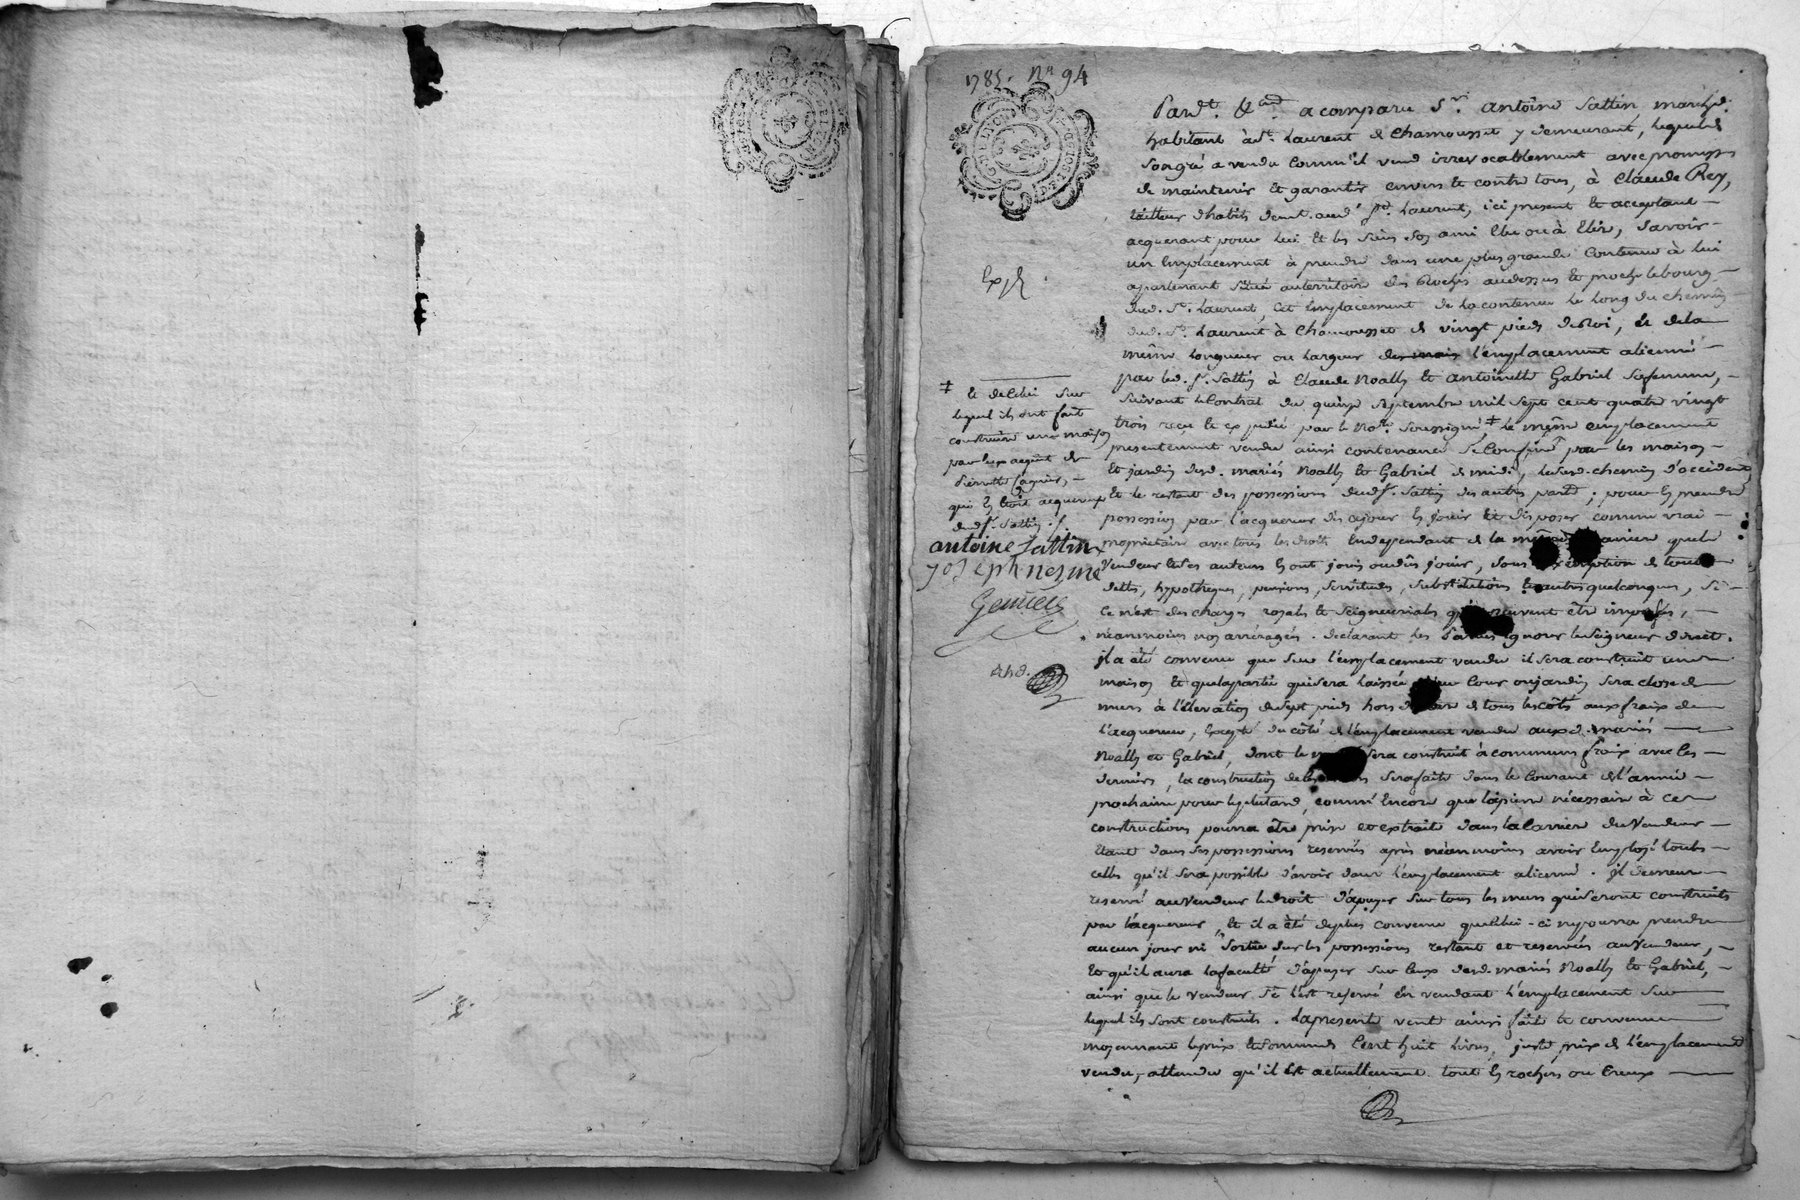 1785. Nº 94
Pard.t &c.a a comparu S.r antoine Sattin march.d
habitant à S.t Laurent de Chamousset y demeurant, lequel de
Son gré a vendu comm'il vend irrevocablement avec promesse
de maintenir et garantir envers et contre tous, à Claude Rey,
tailleur d'habits demt. aud.t S.t Laurent, ici present et acceptant
acquerant pour lui et les Siens Son ami Elu ou à Elir, Savoir
un Emplacement à prendre dans une plus grande Contenue à lui
apartenant Situé au territoire des Roches audessus et proche le bourg
dud. S.t Laurent, Cet Emplacement de la contenue le long du chemin
dud. S.t Laurent à Chamousset de vingt pieds de Roi, et de la
même Longueur ou Largeur l'emplacement alienné
par led. S.r Sattin à Claude Noally et antoinette Gabriel Sa femme,
Suivant le Contrat du quinze Septembre mil Sept cent quatre vingt
trois reçu et expedié par le No.re Soussigné ‡ Le même emplacement
presentement vendu ainsi contenancé Se Confine par les maison
et jardin desd. mariés Noally et Gabriel de midi, ledud. chemin d'occident
et le restant des possessions dud S.r Sattin des autres parts; pour En prendre
possession par l'acquereur dès ce jour En jouir et disposer comme vrai
proprietaire avec tous les droits Endependant de la même maniere que le
Vendeur et Ses auteurs En ont joui ou dûs jouir, Sous exemption de toutes
dettes, hypotheques, pensions, Servitudes, Substitutions et autres quelconques, Si
ce n'est des charges royales et Seigneuriales qui peuvent être imposées,
néanmoins nos arrérages. declarant les Parties ignorer le Seigneur direct.
il a été convenu que Sur l'emplacement vendu il Sera construit une
maison et que la partie qui Sera laissée pour Cour ou jardin Sera close de
murs à l'élevation de Sept pieds hors de terre de tous les côtés aux fraix de
l'acquereur, Excepté du côté de l'Emplacement vendu auxd. mariés
Noally et Gabriel, dont le mur Sera construit à communs fraix avec les
derniers, la construction de Ces murs Sera faite dans le Courant de l'année
prochaine pour le plutard, convenu Encore que la pierre nécessaire à ces
constructions pourra être prise et extraite dans la Carriere du Vendeur
Etant dans Ses possessions reservées après néanmoins avoir Employé toutes
celles qu'il Sera possible d'avoir dans l'emplacement alienné. il demeure
reservé au Vendeur le droit d'apuyer Sur tous les murs qui Seront construits
par l'acquereur, Et il a été deplus convenu que Celui-ci ne pourra prendre
aucun jour ni Sortie Sur les possessions restant et reservées au Vendeur,
et qu'il aura la faculté d'apuyer Sur Ceux desd. mariés Noally et Gabriel,
ainsi que le Vendeur Se l'est reservé En vendant l'emplacement Sur
lequel ils Sont construits. La presente vente ainsi faite et convenue
moyennant le prix et Somme de Cent huit livres, juste prix de l'emplacement
vendu, attendu qu'il est actuellement tout En rochers ou Creux
Exp.é
‡ et de Celui Sur
lequel ils ont fait
construire une maison
par lesquels
qui En acquereur
dud S.r Sattin ./.
antoine Sattin
joseph nesme